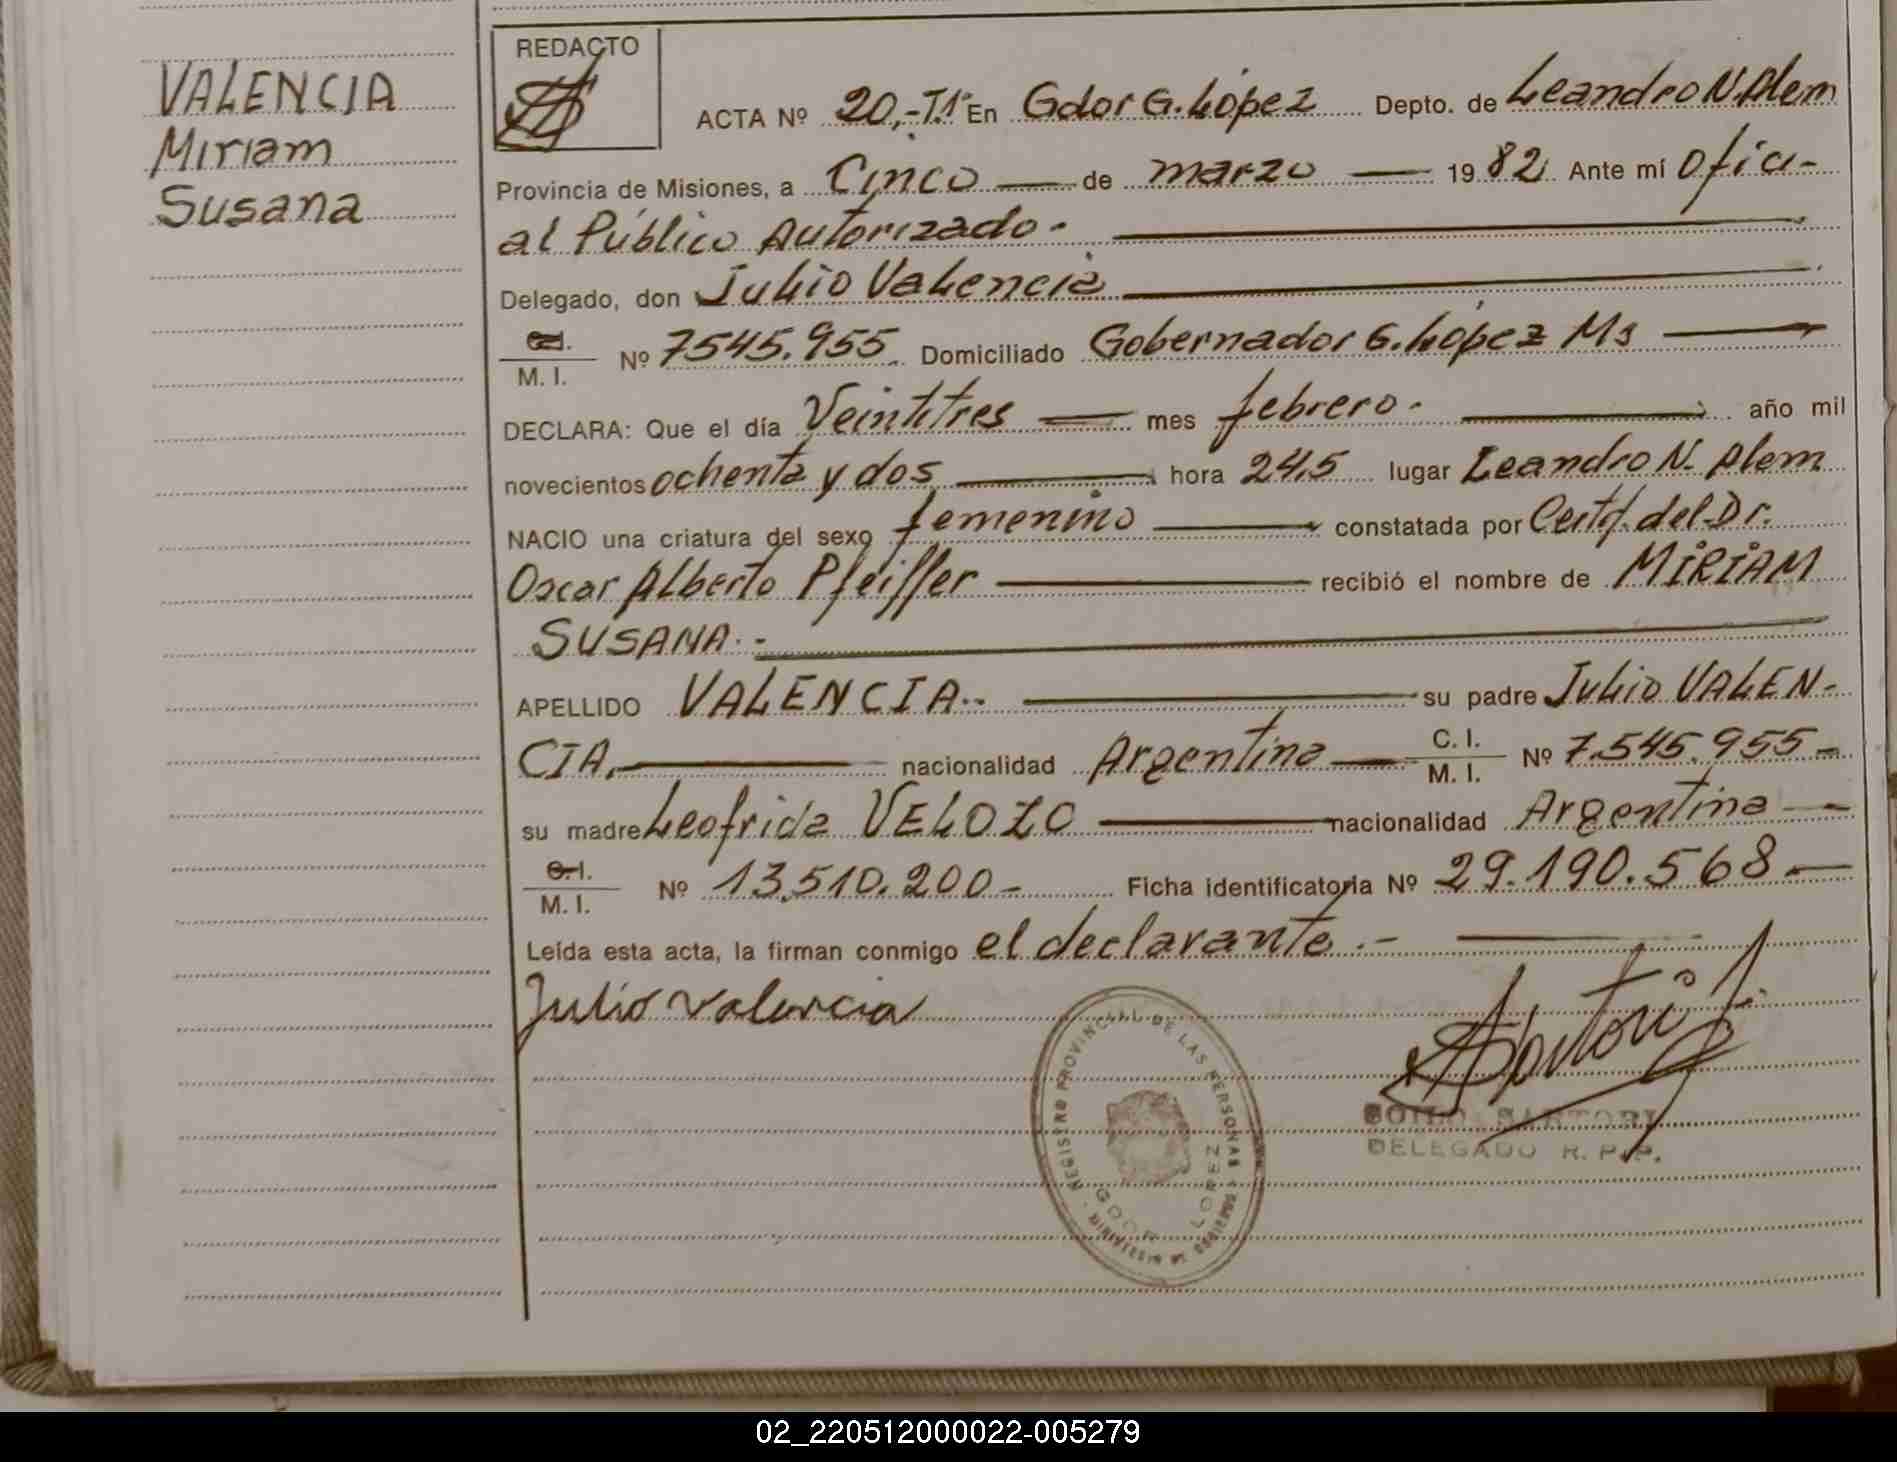 VALENCIA
Miriam
Susana
REDACTO
ACTA Nº 20,-T.1º En Gdor G. López Depto. de Leandro N. Alem
Provincia de Misiones, a Cinco de marzo 1982 Ante mí Ofici-
al Público Autorizado.-
Delegado, don Julio Valencia
C.I. / M. I. Nº 7545.955 Domiciliado Gobernador G. López Ms
DECLARA: Que el día Veintitres mes febrero.- año mil
novecientos ochenta y dos hora 24,5 lugar Leandro N. Alem
NACIO una criatura del sexo femenino constatada por Certif. del Dr.
Oscar Alberto Pfeiffer recibió el nombre de MIRIAM
SUSANA.-
APELLIDO VALENCIA.- su padre Julio VALEN-
CIA, nacionalidad Argentina C. I. / M. I. Nº 7.545.955-
su madre Leofrida VELOZO nacionalidad Argentina
C.I. / M. I. Nº 13.510.200- Ficha identificatoria Nº 29.190.568-
Leída esta acta, la firman conmigo el declarante.-
Julio Valencia
REGISTRO PROVINCIAL DE LAS PERSONAS
GDOR LOPEZ
Sartori
SARTORI
DELEGADO R. P. P.
02_220512000022-005279